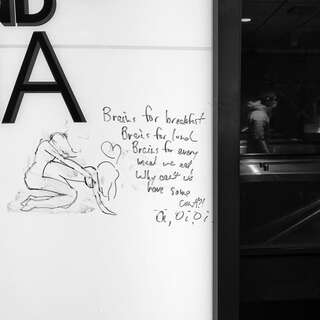 ND
A
Breins for breakfast
Breins for lunch
Breins for every
meal we eat
Why can't we
have some
Oi, Oi, Oi.